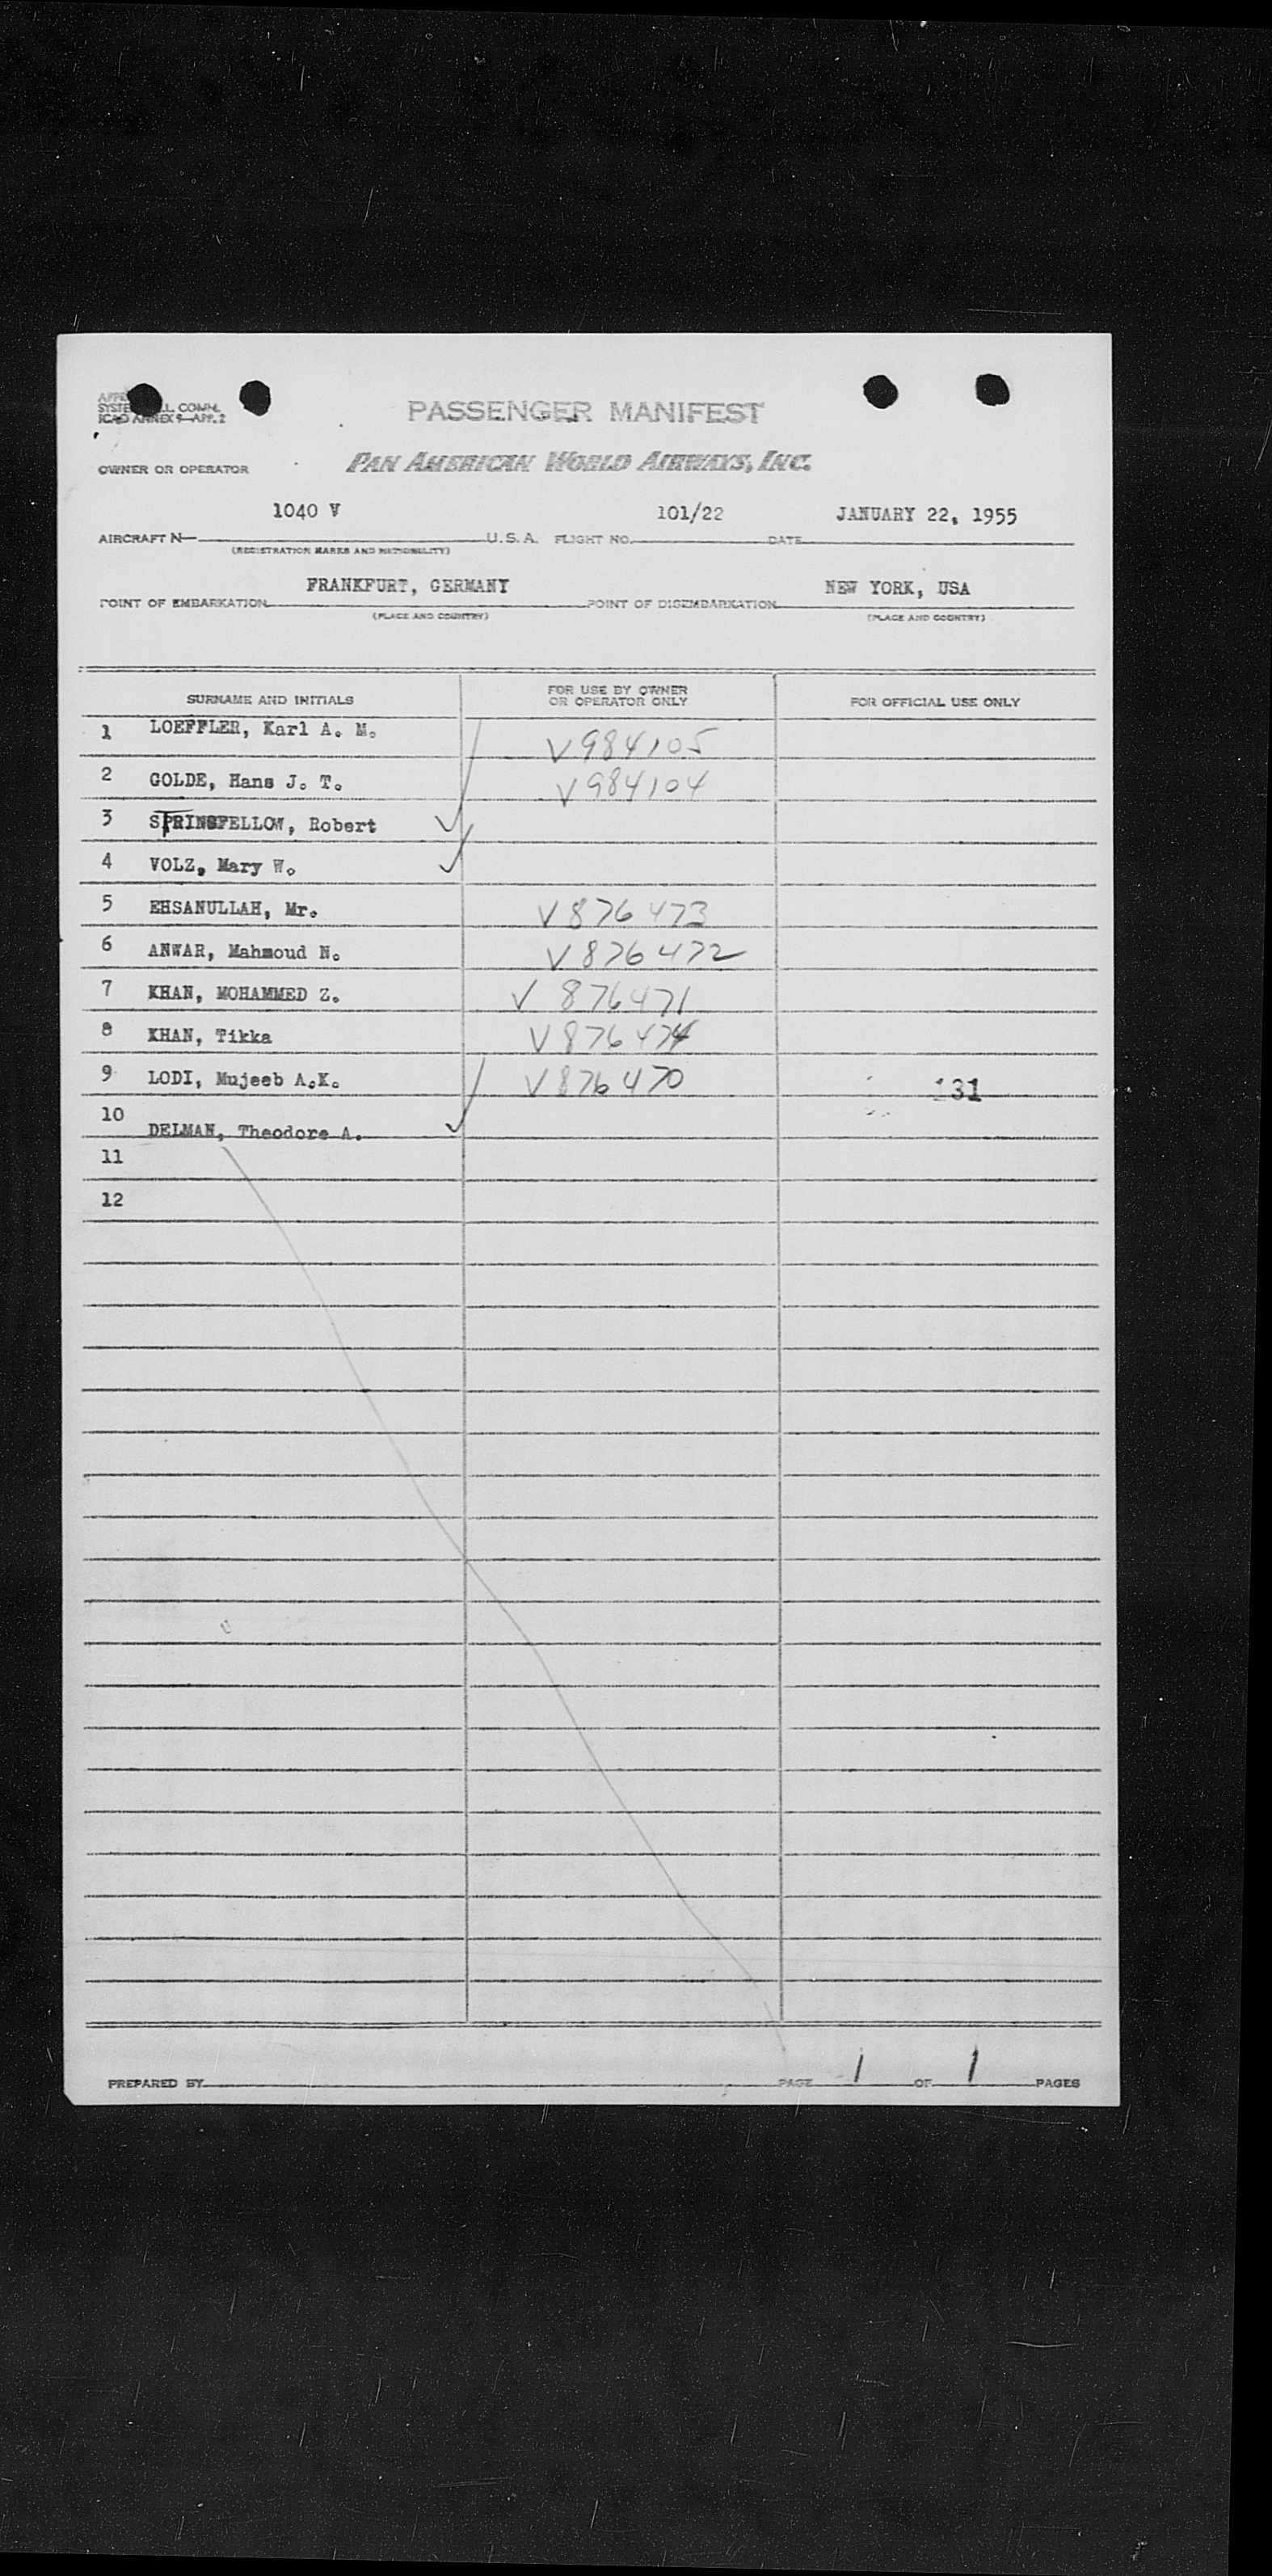 SYSTE L. COMM.
ICAO ANNEX 9—APP. 2
PASSENGER MANIFEST
OWNER OR OPERATOR PAN AMERICAN WORLD AIRWAYS, INC.
1040 V 101/22 JANUARY 22, 1955
AIRCRAFT N— U.S.A. FLIGHT NO. DATE
(REGISTRATION MARKS AND NATIONALITY)
FRANKFURT, GERMANY NEW YORK, USA
POINT OF EMBARKATION POINT OF DISEMBARKATION
(PLACE AND COUNTRY) (PLACE AND COUNTRY)
SURNAME AND INITIALS FOR USE BY OWNER OR OPERATOR ONLY FOR OFFICIAL USE ONLY
1 LOEFFLER, Karl A. M. V984105
2 GOLDE, Hans J. T. V984104
3 Robert
4 VOLZ, Mary W.
5 EHSANULLAH, Mr. V876473
6 ANWAR, Mahmoud N. V876472
7 KHAN, MOHAMMED Z. V 876471
8 KHAN, Tikka V876474
9 LODI, Mujeeb A.K. V876470 131
10 DELMAN, Theodore A.
11
12
PREPARED BY PAGE 1 OF 1 PAGES